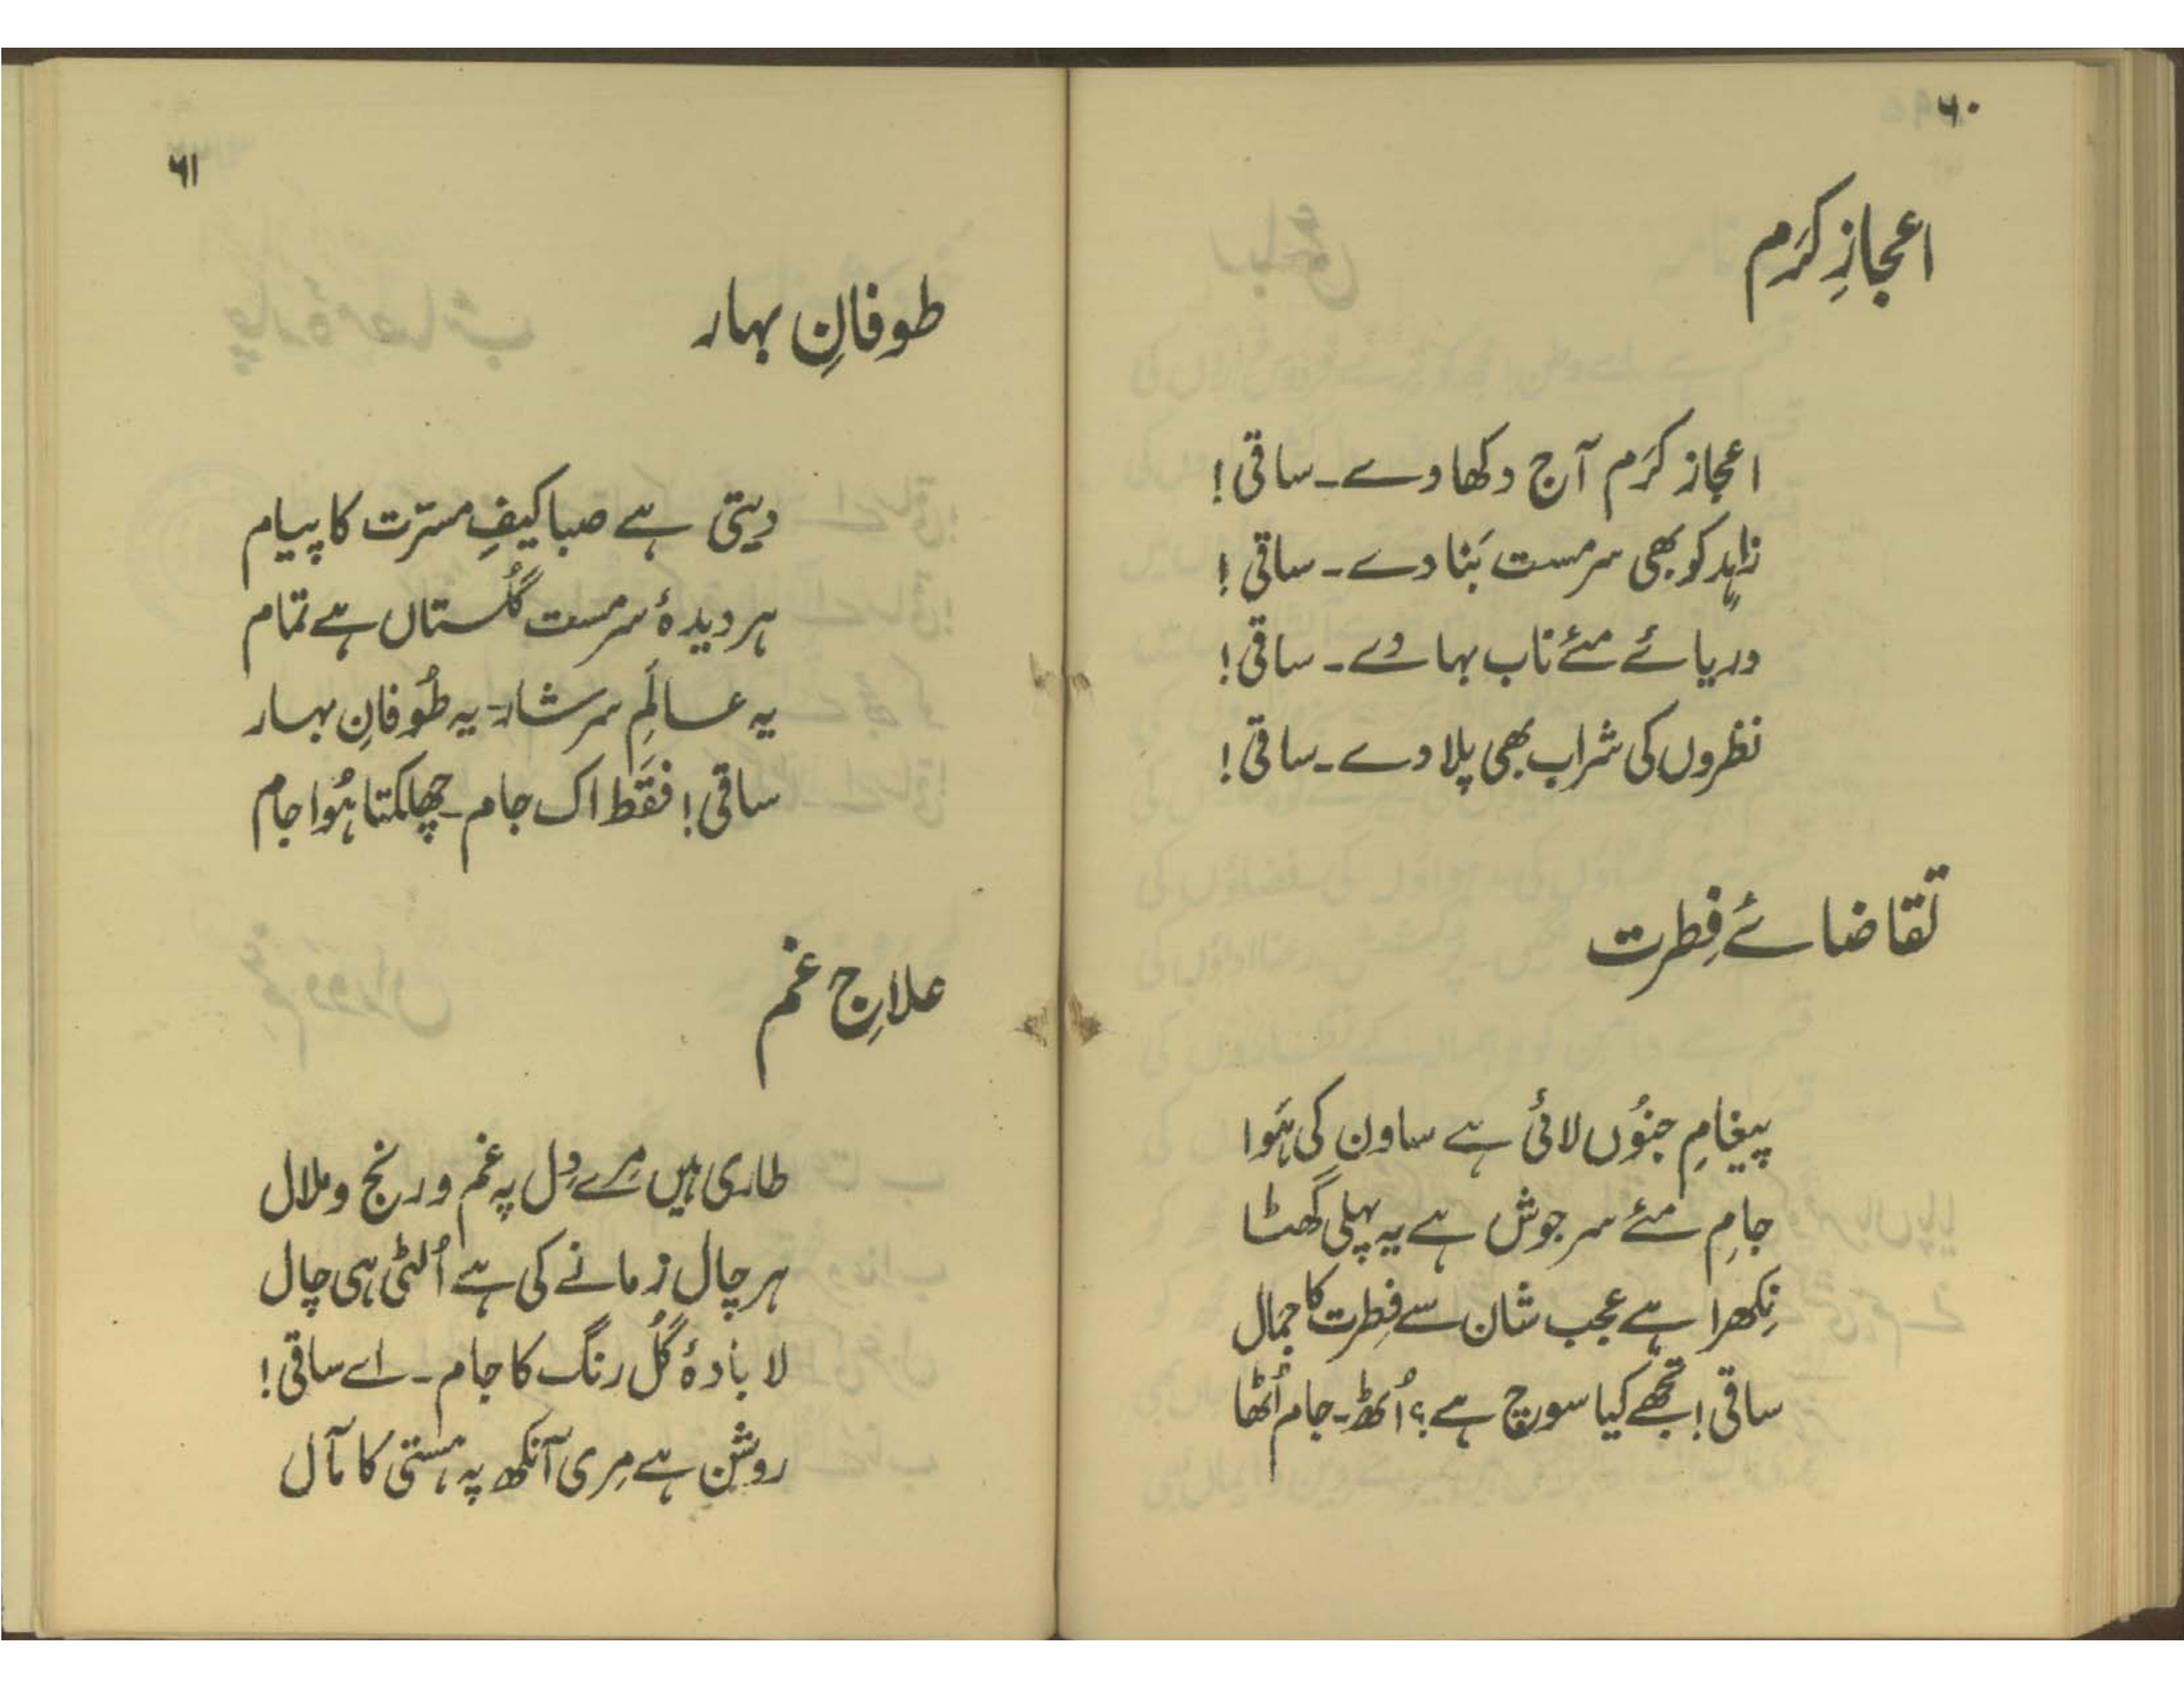 ۶۰
اعجازِ کرَم
اعجاز کرَم آج دکھا دے۔ ساقی!
زاہد کو بھی سرمست بَنا دے۔ ساقی!
دریائے مئے ناب بہا دے۔ ساقی!
نظروں کی شراب بھی پلا دے۔ ساقی!
تقاضائے فِطرت
پیغامِ جنُوں لائی ہے ساون کی ہَوا
جامِ مئے سر جوش ہے یہ پہلی گھٹا
نِکھرا ہے عجب شان سے فِطرت کا جمال
ساقی! تجھے کیا سوچ ہے؟ اُٹھ۔ جام اُٹھا
۶۱
طوفانِ بہار
دیتی ہے صبا کیفِ مسرّت کا پیام
ہر دیدۂ سرمست گُلستاں ہے تمام
یہ عالَمِ سرشار۔ یہ طُوفانِ بہار
ساقی! فقَط اک جام۔ چھلکتا ہُوا جام
علاجِ غم
طاری ہیں مِرے دِل پہ غم و رنج و ملال
ہر چال زمانے کی ہے اُلٹی ہی چال
لا بادۂ گُل رنگ کا جام۔ اے ساقی!
روشن ہے مِری آنکھ پہ ہستی کا مآل